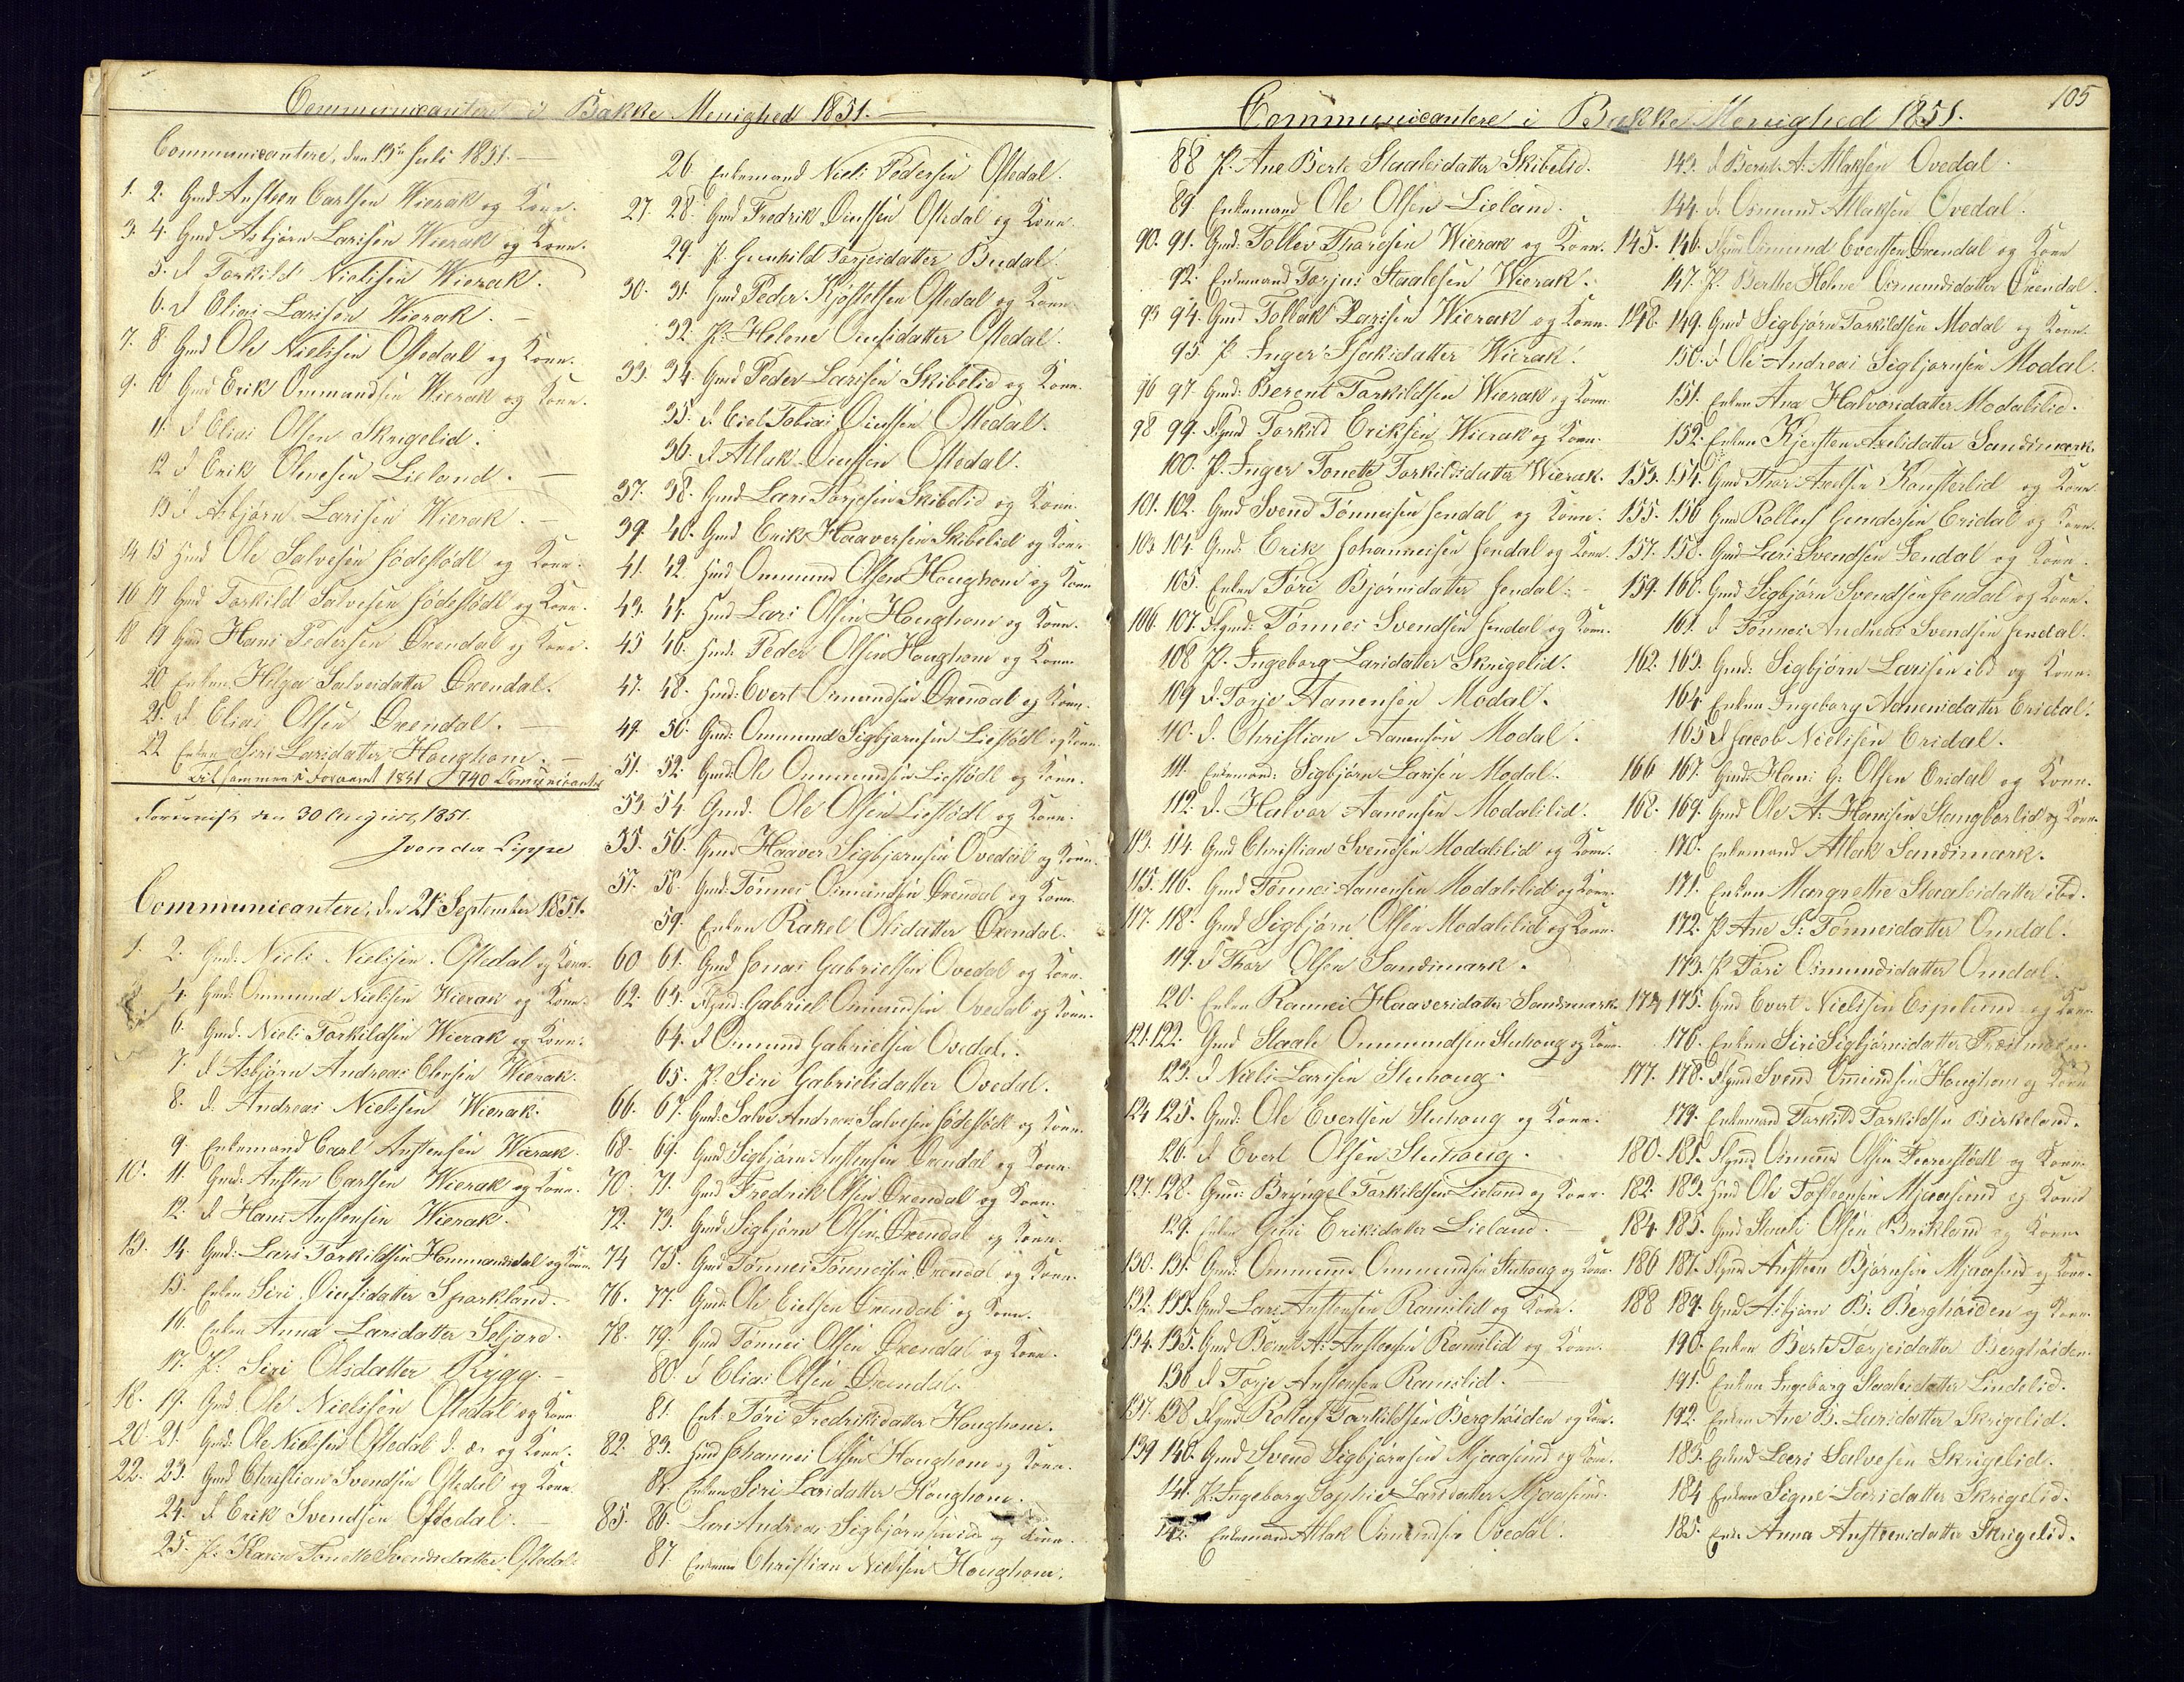 Communicantere i Bakke Menighed 1851.
Communicantere, den 13de Juli 1851.
1. 2. Gmd Austeen Carlsen Wierak og Kone.
3. 4. Gmd Asbjørn Larssen Wierak og Kone.
5. d Torkild Nielssen Wierak.
6. d Elias Larssen Wierak.
7. 8 Gmd Ole Nielssen Oftedal og Kone.
9. 10 Gmd Erik Ommundsen Wierak og Kone.
11. d Elias Olsen Skregelid.
12 d Erik Olnesen Lieland.
13 d Asbjørn Larssen Wierak.
14 15 Hmd Ole Salvesen Fødestødl og Kone.
16 17 Gmd Torkild Salvesen Fødestødl og Kone.
18 19 Gmd Hans Pedersen Øxendal og Kone.
20 Enken Helga Salvesdatter Øxendal.
21. d Elias Olsen Øxendal.
22 Enken Siri Larsdatter Houghom.
Tilsammen i Foraaret 1851 740 Communicanter
den 30 August 1851.
J von der Lippe
Communicantere, den 21de September 1851.
1. 2. Gmd: Niels Nielssen Oftedal og Kone.
4. Gmd: Ommund Nielssen Wierak og Kone.
6. Gmd: Niels Torkildsen Wierak og Kone.
7. d Asbjørn Andreas Wierak.
8. d. Andreas Nielssen Wierak.
9. Enkemand Carl Austensen Wierak.
10. 11. Gmd: Austen Carlsen Wierak og Kone.
12. d Hans Austensen Wierak.
13. 14. Gmd: Lars Torkildsen Hommundsdal og Kone.
15. Enken Siri Sparkland.
16. Enken Anna Larsdatter Seljord.
17. P: Siri Olsdatter Rygg.
18. 19. Gmd Ole Nielssen Oftedal og Kone
20. 21. Gmd: Ole Nielssen Oftedal d. æ. og Kone.
22. 23. Gmd Christian Svendsen Oftedal og Kone
24. d Erik Svendsen Oftedal.
25. P: Karen Tonette Svendsdatter Oftedal.
26. Enkemand Niels Pedersen Oftedal.
27. 28. Gmd Fredrik Oftedal og Kone.
29. P. Gunhild Torjesdatter Budal.
30. 31. Gmd Peder Kjøstelsen Oftedal og Kone
32. P. Helene Oftedal.
33. 34. Gmd Peder Larssen Skibelid og Kone.
35. d. Eiel Tobias Oftedal.
36. d Atlak Oftedal.
37. 38. Gmd Lars Torjesen Skibelid og Kone.
39. 40. Gmd Erik Haaversen Skibelid og Kone
41. 42. Hmd Ommund Olsen Houghom og Kone
43. 44. Hmd Lars Olsen Houghom og Kone.
45 46. Hmd: Peder Olsen Houghom og Kone.
47. 48. Hmd: Evert Osmundsen Øxendal og Kone.
49. 50. Gmd: Ommund Sigbjørnsen Liestødl og Kone.
51. 52. Gmd: Ole Ommundsen Liestødl og Kone.
53. 54. Gmd: Ole Olsen Liestødl og Kone.
55. 56. Gmd Haaver Sigbjørnsen Ovedal og Kone.
57. 58. Gmd: Tønnes Osmundsen Øxendal og Kone.
59. Enken Rakel Olsdatter Øxendal.
60 61. Gmd Jonas Gabrielsen Ovedal og Kone.
62. 63. Flgmd: Gabriel Osmundsen Ovedal og Kone.
64. d Osmund Gabrielsen Ovedal.
65. P. Siri Gabrielsdatter Ovedal.
66. 67. Gmd: Salve Andreas Salvesen Fødestødl og Kone.
68. 69. Gmd Sigbjørn Austensen Øxendal og Kone.
70. 71. Gmd Fredrik Olsen Øxendal og Kone.
72. 73. Gmd Sigbjørn Olsen Øxendal og Kone.
74 75. Gmd Tønnes Tønnessen Øxendal og Kone.
76. 77. Gmd: Ole Eielsen Øxendal og Kone.
78. 79. Gmd Tønnes Olsen Øxendal og Kone.
80. d Elias Olsen Øxendal.
81. Enk: Tøri Fredriksdatter Houghom.
82. 83. Hmd Johannes Olsen Houghom og Kone.
84. Enken Siri Larsdatter Houghom.
85. 86. Lars Andreas Sigbjørnsen ibd og Kone.
87. Enkem Christian Nielsen Houghom.
Communicantere i Bakke Menighed 1851.
105
88 P. Ane Berte Staalesdatter Skibelid.
89 Enkemand Ole Olsen Lieland.
90. 91. Gmd: Tollev Thoresen Wierak og Kone.
92. Enkemand Torjus Staalesen Wierak.
93 94. Gmd Tollak Larssen Wierak og Kone.
95. P. Inger Wierak.
96 97. Gmd: Berent Torkildsen Wierak og Kone
98 99. Flgmd Torkild Eriksen Wierak og Kone.
100. P. Inger Tonette Torkildsdatter Wierak.
101. 102. Gmd Svend Tønnesen Jendal og Kone.
103 104. Gmd: Erik Johannesen Jendal og Kone.
105. Enken Tøri Bjørnsdatter Jendal.
106. 107. Flgmd: Tønnes Svendsen Jendal og Kone.
108 P. Ingeborg Larsdatter Skrigelid.
109 d. Torje Aanensen Modal.
110. d. Christian Aanensen Modal.
111. Enkemand: Sigbjørn Larssen Modal.
112. d. Halvor Aanensen Modalslid.
113. 114. Gmd Christian Svendsen Modalslid og Kone.
115. 116. Gmd Tønnes Aanensen Modalslid og Kone.
117. 118. Gmd Sigbjørn Olsen Modalslid og Kone.
119. d Thor Olsen Sandsmark.
120. Enken Rannei Haaversdatter Sandsmark.
121. 122. Gmd Staale Ommundsen Stuhoug og Kone.
123. d Niels Larssen Stuhoug.
124 125. Gmd: Ole Evertsen Stuhoug og Kone.
126. d Evert Olsen Stuhoug.
127. 128. Gmd: Bryngel Torkildsen Lieland og Kone.
129. Enken Guri Eriksdatter Lieland.
130. 131. Gmd: Ommund Ommundsen Stuhoug og Kone.
132. 133. Gmd Lars Austensen Ramslid og Kone.
134. 135. Gmd Bernt A. Austensen Ramslid og Kone.
136 d Torje Austensen Ramslid.
137. 138 Flgmd Rolleif Torkildsen Berghøiden og Kone.
139 140. Gmd Svend Sigbjørnsen Mjaasund og Kone.
141. P: Ingeborg Sophie Larsdatter Mjaasund.
142. Enkemand Atlak Osmundsen Ovedal.
143. d Bernt A. Atlaksen Ovedal.
144. d. Osmund Atlaksen Ovedal.
145. 146. Flgmd Osmund Evertsen Øxendal og Kone
147. P. Berthe Helene Osmundsdatter Øxendal.
148. 149. Gmd Sigbjørn Torkildsen Modal og Kone.
150. d Ole Andreas Sigbjørnsen Modal.
151. Enken Ana Halvorsdatter Modalslid.
152. Enken Kjersten Axelsdatter Sandsmark
153. 154. Gmd Thor Axelsen Konsterlid og Kone
155. 156 Gmd Rolleif Gundersen Eridal og Kone.
157. 158. Gmd Lars Svendsen Jendal og Kone.
159. 160. Gmd Sigbjørn Svendsen Jendal og Kone.
161. d Tønnes Andreas Svendsen Jendal.
162. 163. Gmd: Sigbjørn Larssen ibd og Kone.
164 Enken Ingeborg Aanensdatter Eridal.
165 d Jacob Nielssen Eridal.
166 167. Gmd: Hans G: Olsen Eridal og Kone.
168. 169. Gmd Ole A. Hanssen Stangborlid og Kone.
170. Enkemand Atlak Sandsmark.
171. Enken Margrethe Staalesdatter ibd.
172. P Ane S: Tønnesdatter Omdal.
173. P Tøri Osmundsdatter Omdal.
174 175. Gmd Evert Nielssen Espelund og Kone.
176. Enken Siri Sigbjørnsdatter
177. 178. Flgmd Svend Ommundsen Houghom og Kone
179. Enkemand Torkild Torkildsen Birkeland.
180. 181. Flgmd Osmund Olsen og Kone
182. 183. Hmd Ole Tosteensen Mjaasund og Kone
184. 185. Gmd Staale Olsen Birkeland og Kone
186 187. Flgmd Austeen Bjørnsen Mjaasund og Kone.
188 189. Gmd Asbjørn B: Berghøiden og Kone.
190. Enken Berte Torjesdatter Berghøiden.
191. Enken Ingeborg Staalesdatter Lindelid.
192. Enken Ane B. Larsdatter Skrigelid.
183. Enkemd Lars Salvesen Skrigelid.
184 Enken Signe Larsdatter Skrigelid.
185. Enk: Anna Austeensdatter Skrigelid.